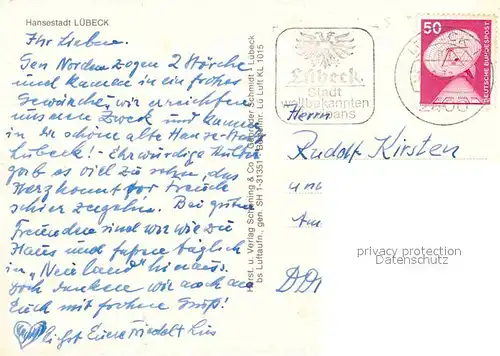 Hansestadt LÜBECK
Ihr Lieben.
Gen Norden zogen 2 Störche
und kamen in ein frohes
wir erreichten
unseren Zweck und kamen
in die schöne alte Hanse-Stadt
Lübeck! - Ehrwürdige Kultur
gab es viel zu sehen, das
Herz konnt vor Freude
schier zergehn. Bei guten
Freunden sind wir wie zu
Haus und fahren täglich
in „Neuland" hinaus.
Doch denken wir auch an
Euch mit frohem Gruß!
lichst Eure
Herst. u. Verlag Schöning & Co + Gebrüder Schmidt, Lübeck
bs Luftaufn., gen. SH 1-31351 Lü Luft KL 1015
Lübeck
Stadt
weltbekannten
pans
LÜBECK
50
DEUTSCHE BUNDESPOST
Herrn
Rudolf Kirsten
DD
privacy protection
Datenschutz